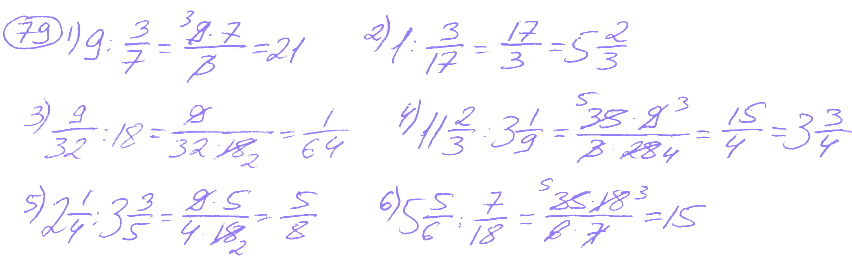 79 1) 9 : 3/7 = 9·7/3 = 21 2) 1 : 3/17 = 17/3 = 5 2/3
3) 9/32 : 18 = 9/32·18 2 = 1/64 4) 11 2/3 : 3 1/9 = 5 35·9 3/3·28 4 = 15/4 = 3 3/4
5) 2 1/4 : 3 3/5 = 9·5/4·18 2 = 5/8 6) 5 5/6 : 7/18 = 5 35·18 3/6·7 = 15